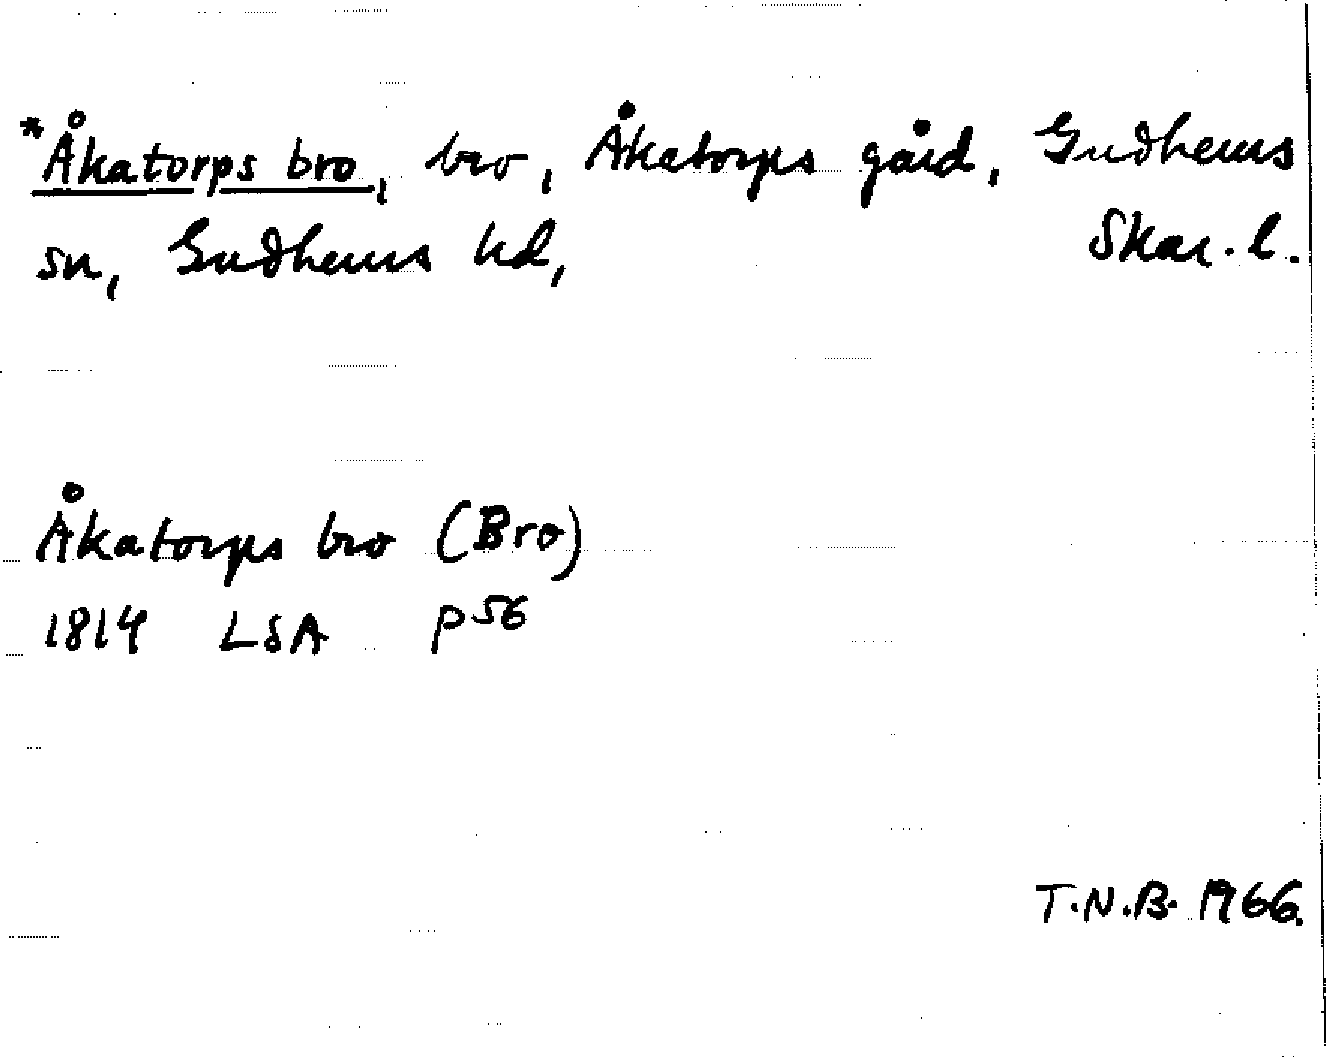 *Åkatorps bro, bro, Åkatorps gård, Gudhems
sn, Gudhems hd, Skar. l.
Åkatorps bro (Bro)
1814 LSA P 56
T.N.B. 1966.